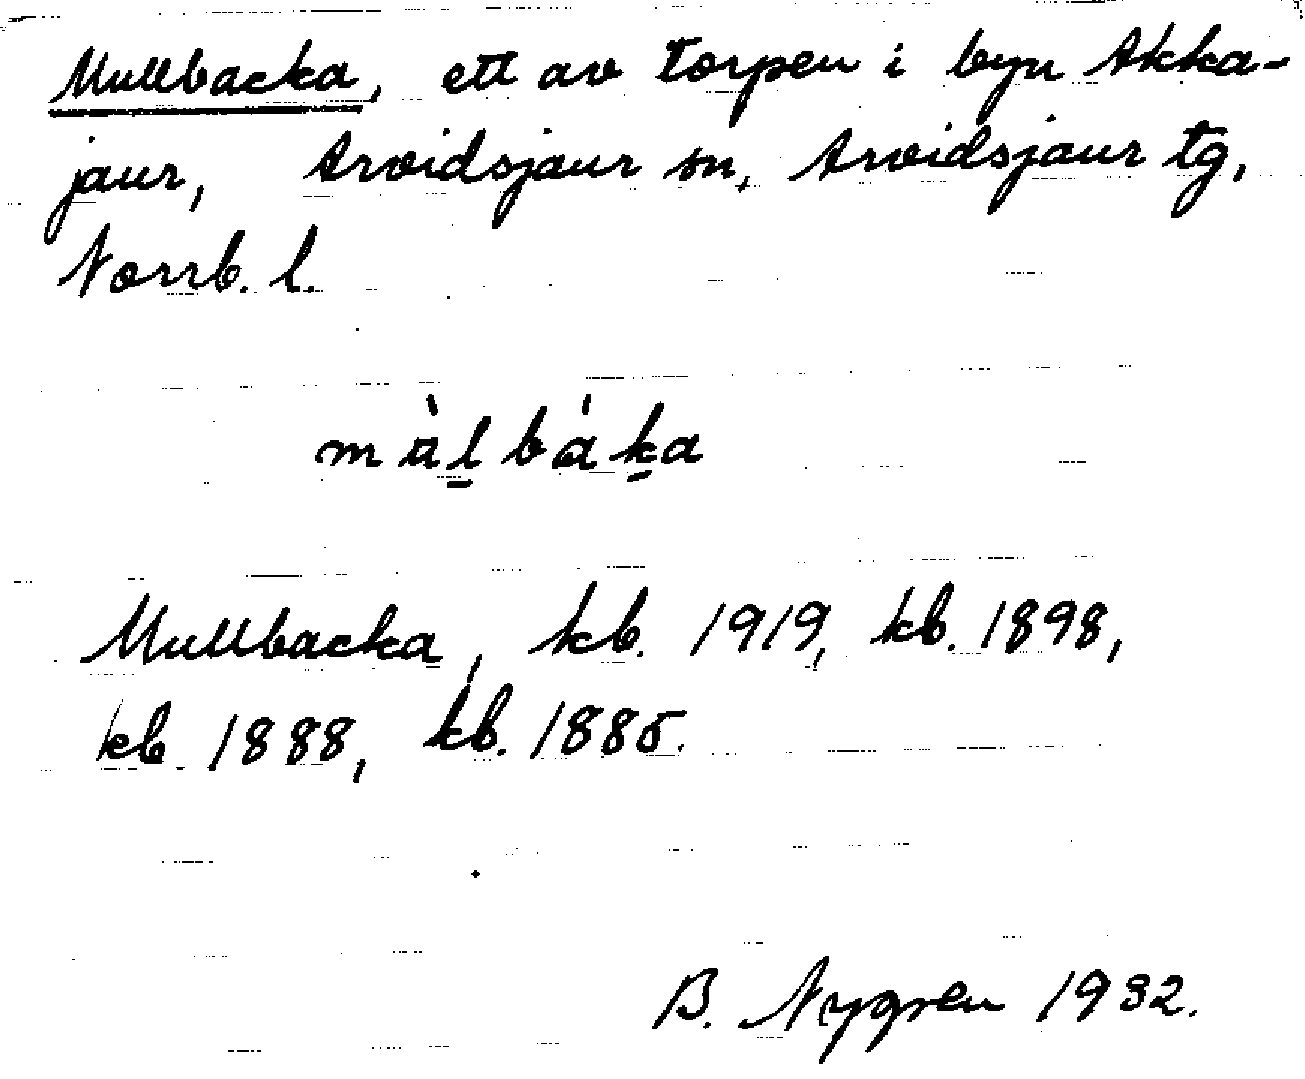 Mullbacka, ett av torpen i byn Akka-
jaur, Arvidsjaur sn, Arvidsjaur tg,
Norrb. l.
mùl̠báḵa
Mullbacka, kb. 1919, kb. 1898,
kb. 1888, kb. 1885.
B. Nygren 1932.